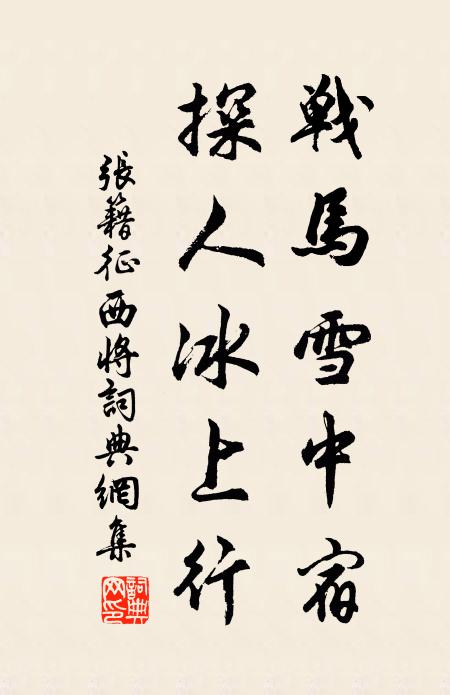 戦馬雪中宿
探人冰上行
張籍征西將詞典網集
詞典網印